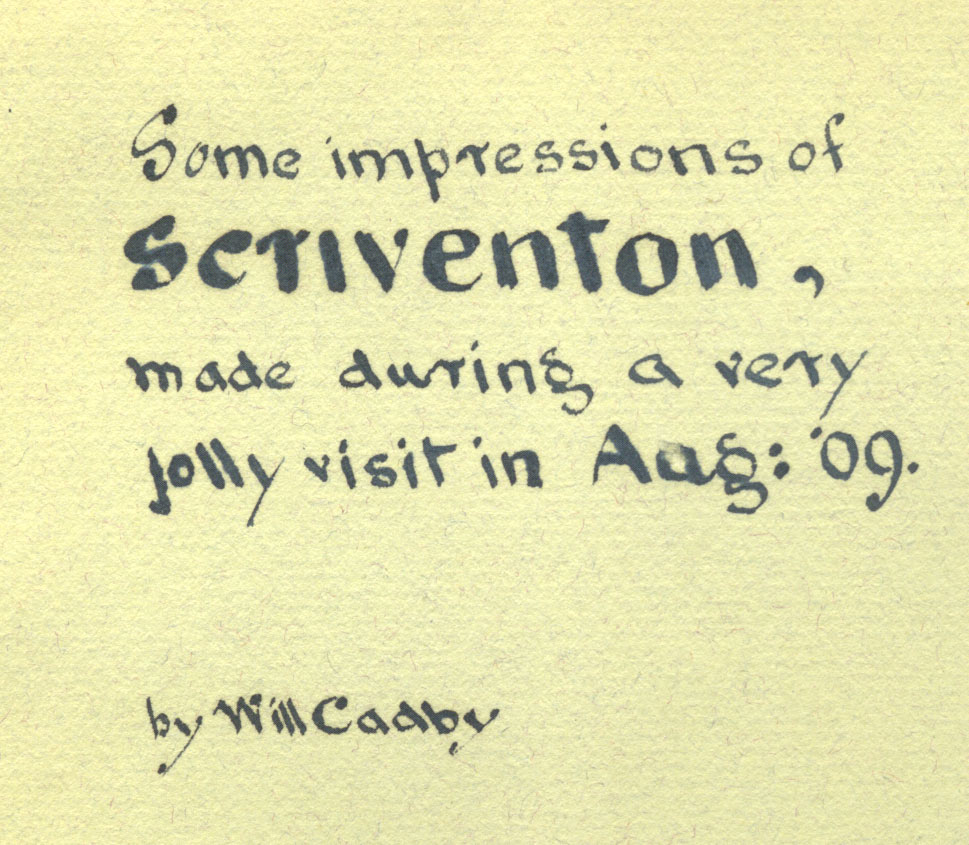 Some impressions of
Scriventon,
made during a very
jolly visit in Aug: '09.
by Will Cadby